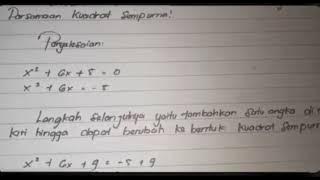 Persamaan Kuadrat Sempurna!
Penyelesaian:
x² + 6x + 5 = 0
x² + 6x = -5
Langkah selanjutnya yaitu tambahkan satu angka di
kiri hingga dapat berubah ke bentuk kuadrat sempur
x² + 6x + 9 = -5 + 9